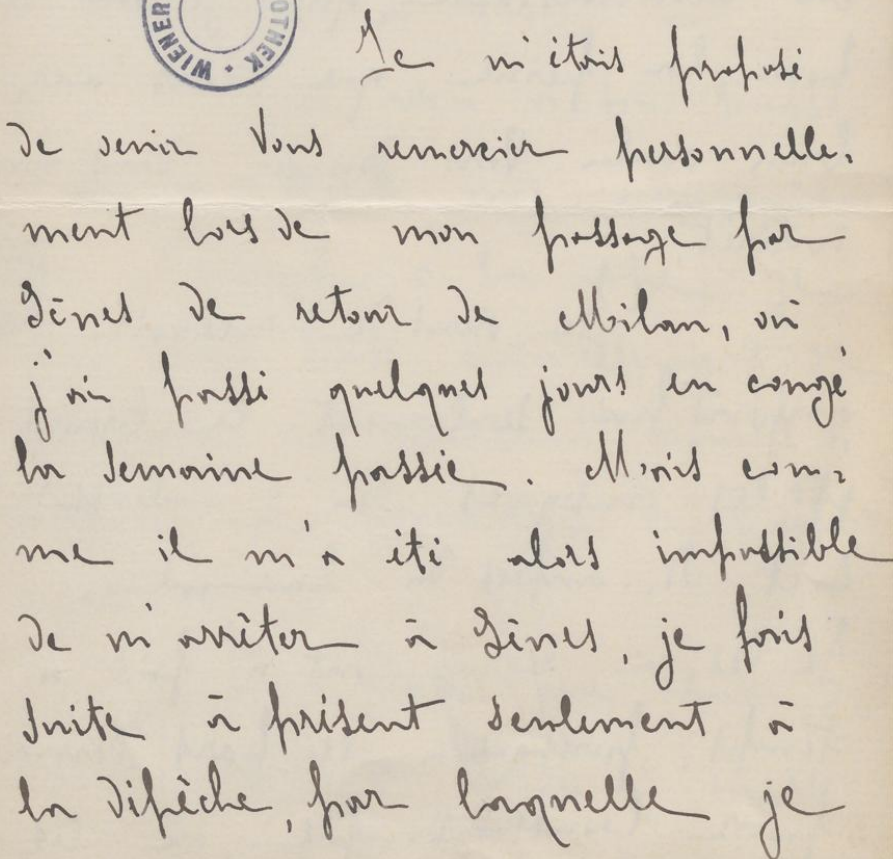 WIENER
OTHEK
Je m'étais proposé
de venir Vous remercier personnelle-
ment lors de mon passage par
Gênes de retour de Milan, où
j'ai passé quelques jours en congé
la semaine passée. Mais com-
me il m'a été alors impossible
de m'arrêter à Gênes, je fais
suite à présent seulement à
la dépêche, par laquelle je